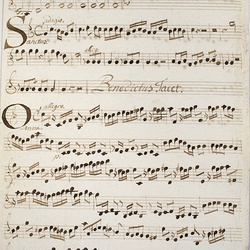 adagio.
Sanctus
allo
Benedictus Tacet.
allegro.
Osanna